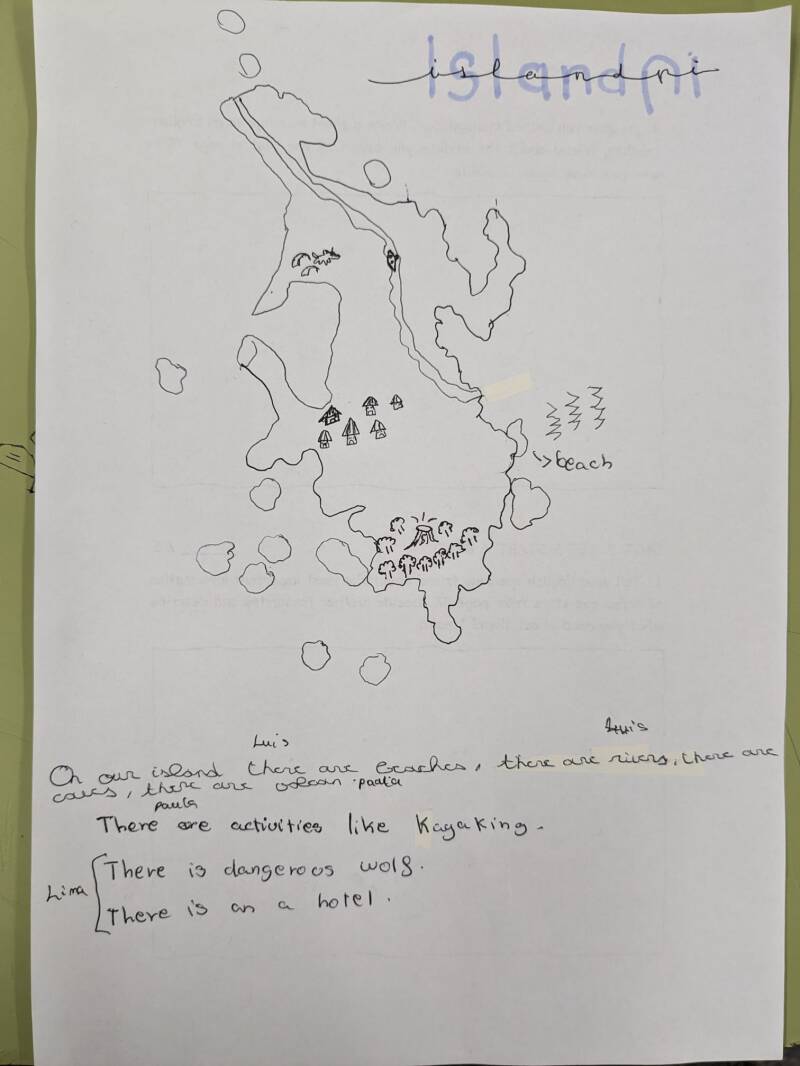 islandpi
islandpi
beach
Luis
Luis
On our island there are beaches, there are rivers, there are
caves, there are volcan. paula
paula
There are activities like Kayaking.
Lima
There is dangerous wolf.
There is an a hotel.